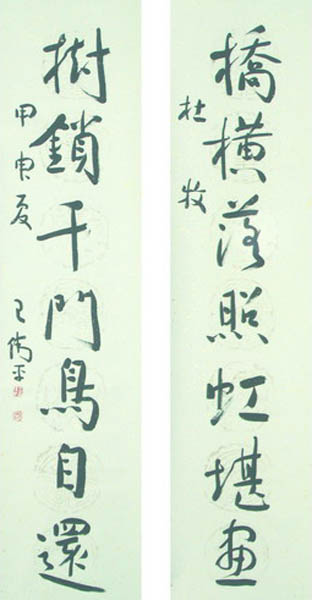 橋橫落照虹堪畫
杜牧
樹鎖千門鳥自還
甲申夏